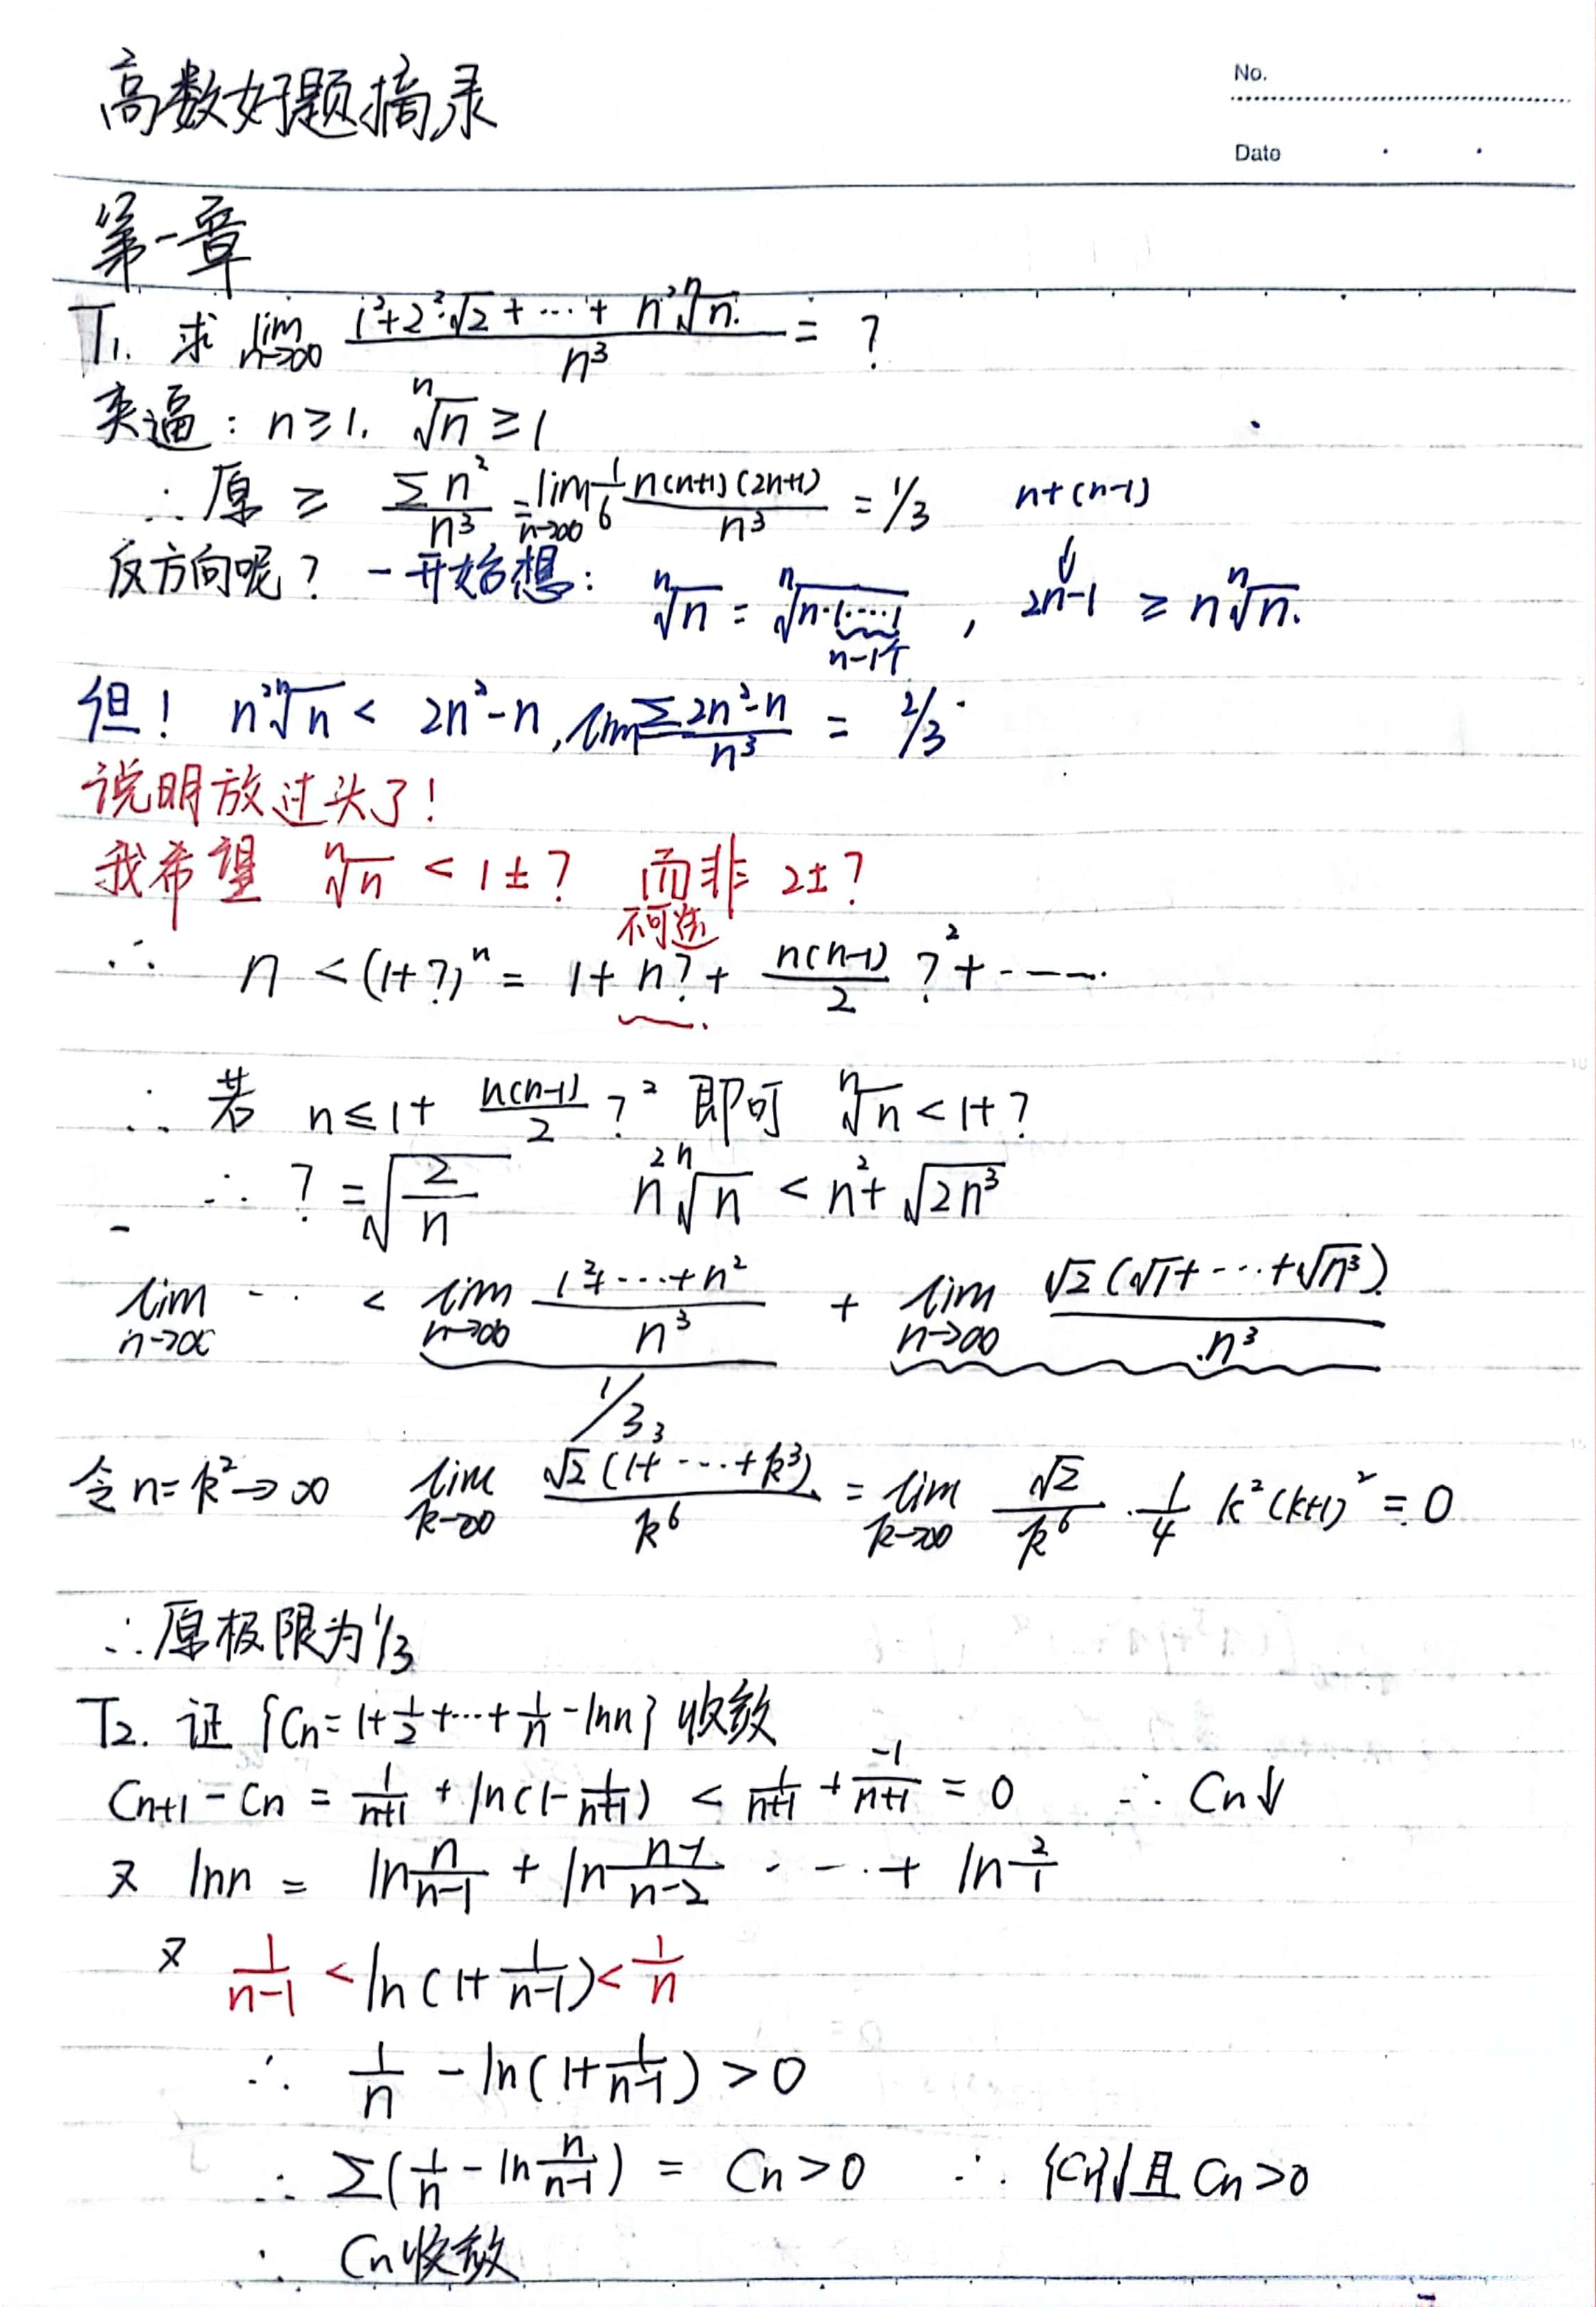 高数好题摘录
No.
Date
第一章
T1. 求 lim n→∞ (1²+2²·√2+⋯+n² ⁿ√n)/n³ = ?
夹逼: n≥1. ⁿ√n ≥ 1
∴ 原 ≥ Σn²/n³ = lim n→∞ 1/6 n(n+1)(2n+1)/n³ = 1/3 n+(n-1)
反方向呢? 一开始想: ⁿ√n = ⁿ√(n·1·⋯·1) n-1个, ⇓ 2n-1 ≥ n ⁿ√n.
但! n² ⁿ√n < 2n²-n, lim Σ(2n²-n)/n³ = 2/3
说明放过头了!
我希望 ⁿ√n < 1±? 而非 2±?
不可选
∴ n < (1+?)ⁿ = 1+n?+ n(n-1)/2 ?²+-----
∴ 若 n≤1+ n(n-1)/2 ?² 即可 ⁿ√n < 1+?
∴ ? = √(2/n) n² ⁿ√n < n²+√(2n³)
lim n→∞ ⋯ < lim n→∞ (1²+⋯+n²)/n³ + lim n→∞ √2(√1+⋯+√n³)/n³
1/3
令n=k²→∞ lim k→∞ √2(1³+⋯+k³)/k⁶ = lim k→∞ √2/k⁶ · 1/4 k²(k+1)² = 0
∴原极限为1/3
T2. 证 {Cn=1+1/2+⋯+1/n-lnn} 收敛
Cn+1-Cn = 1/(n+1) + ln(1-1/(n+1)) < 1/(n+1) + -1/(n+1) = 0 ∴ Cn↓
又 lnn = ln n/(n-1) + ln (n-1)/(n-2) ⋯ + ln 2/1
又 1/(n-1) < ln(1+1/(n-1)) < 1/n
∴ 1/n - ln(1+1/(n-1)) > 0
∴ Σ(1/n - ln n/(n-1)) = Cn > 0 ∴ {Cn}↓且 Cn>0
∴ Cn收敛